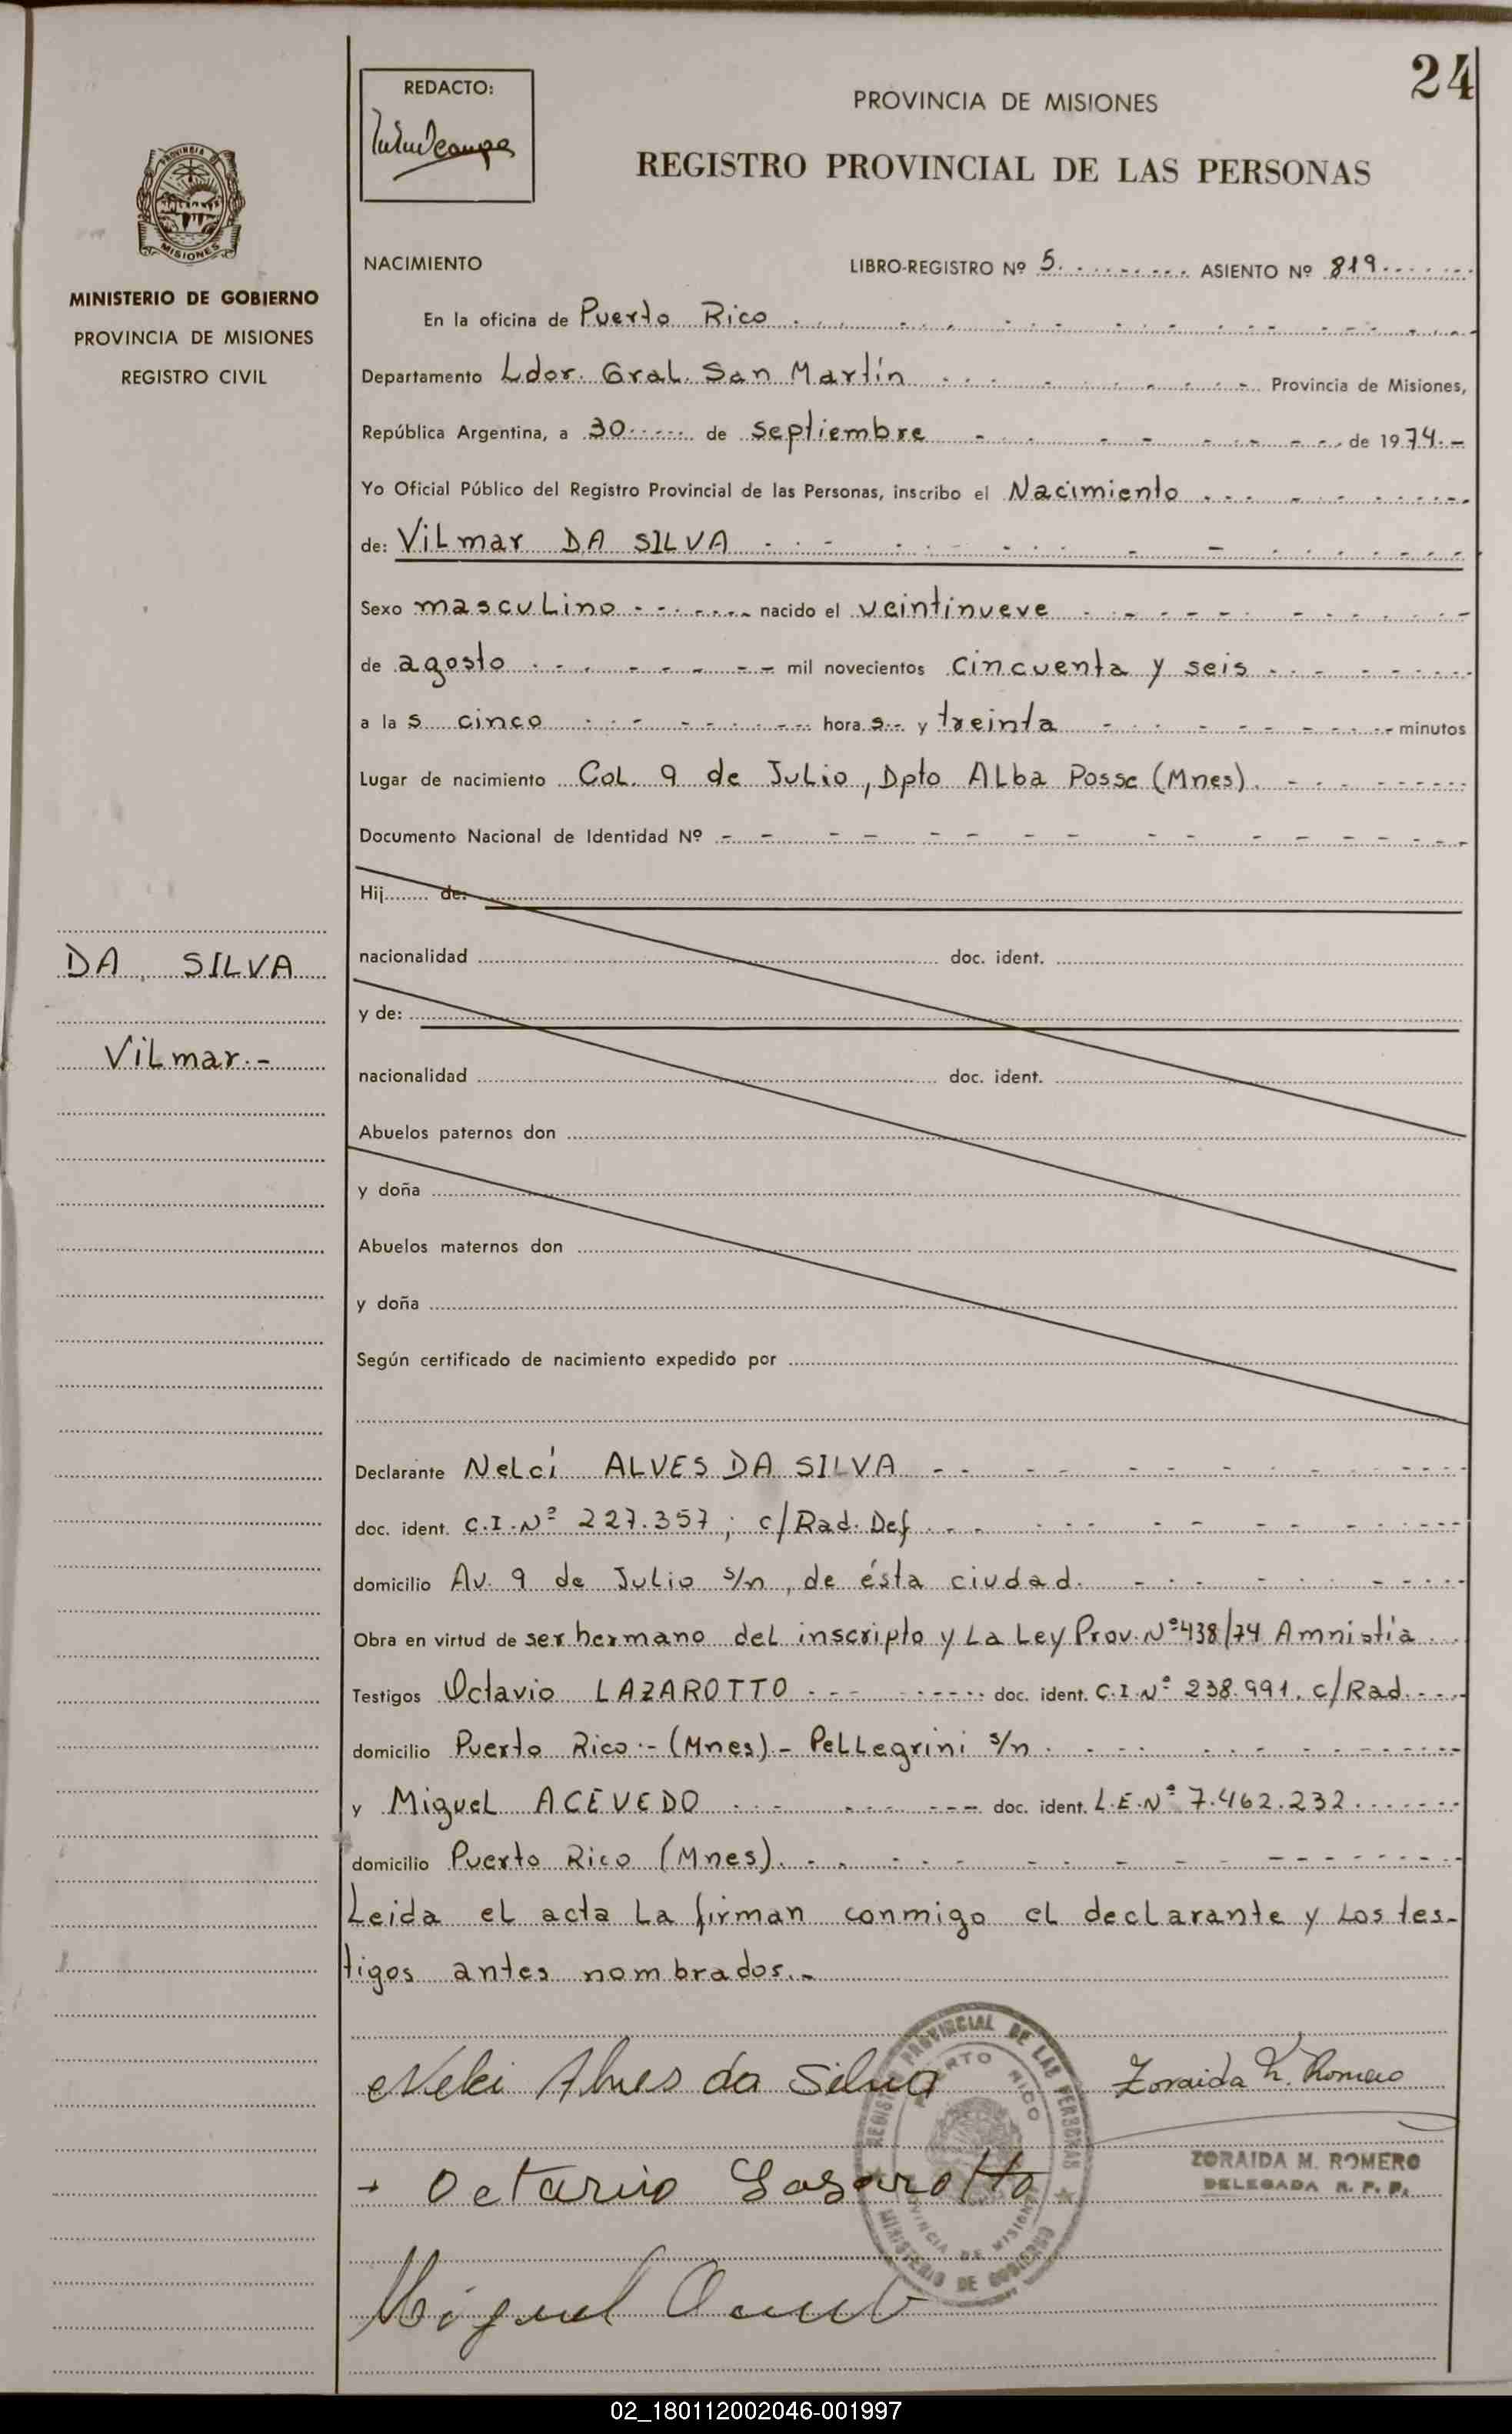 24
REDACTO:
PROVINCIA DE MISIONES
REGISTRO PROVINCIAL DE LAS PERSONAS
PROVINCIA DE
MISIONES
MINISTERIO DE GOBIERNO
PROVINCIA DE MISIONES
REGISTRO CIVIL
NACIMIENTO LIBRO-REGISTRO Nº 5. ASIENTO Nº 819
En la oficina de Puerto Rico
Departamento Ldor. Gral. San Martín Provincia de Misiones,
República Argentina, a 30 de septiembre de 1974.-
Yo Oficial Público del Registro Provincial de las Personas, inscribo el Nacimiento
de: Vilmar DA SILVA
Sexo masculino nacido el veintinueve
de agosto mil novecientos cincuenta y seis
a la s cinco hora s y treinta minutos
Lugar de nacimiento Col. 9 de Julio, Dpto Alba Posse (Mnes).
Documento Nacional de Identidad Nº
Hij........ de:
nacionalidad doc. ident.
y de:
nacionalidad doc. ident.
Abuelos paternos don
y doña
Abuelos maternos don
y doña
Según certificado de nacimiento expedido por
DA SILVA
Vilmar.-
Declarante Nelci ALVES DA SILVA
doc. ident. C.I.Nº 227.357; c/Rad. Def.
domicilio Av. 9 de Julio s/n, de ésta ciudad.
Obra en virtud de ser hermano del inscripto y La Ley Prov. Nº438/74 Amnistía
Testigos Octavio LAZAROTTO doc. ident. C.I.Nº 238.991. c/Rad.
domicilio Puerto Rico.- (Mnes)- Pellegrini s/n.
y Miguel ACEVEDO doc. ident. L.E.Nº 7.462.232
domicilio Puerto Rico (Mnes).
Leida el acta la firman conmigo el declarante y los tes-
tigos antes nombrados.-
Nelci Alves da Silva
Zoraida M. Romero
REGISTRO PROVINCIAL DE LAS PERSONAS
PUERTO RICO
PROVINCIA DE MISIONES
MINISTERIO DE GOBIERNO
ZORAIDA M. ROMERO
DELEGADA R. P. P.
Octavio Lasarotto
Miguel
02_180112002046-001997